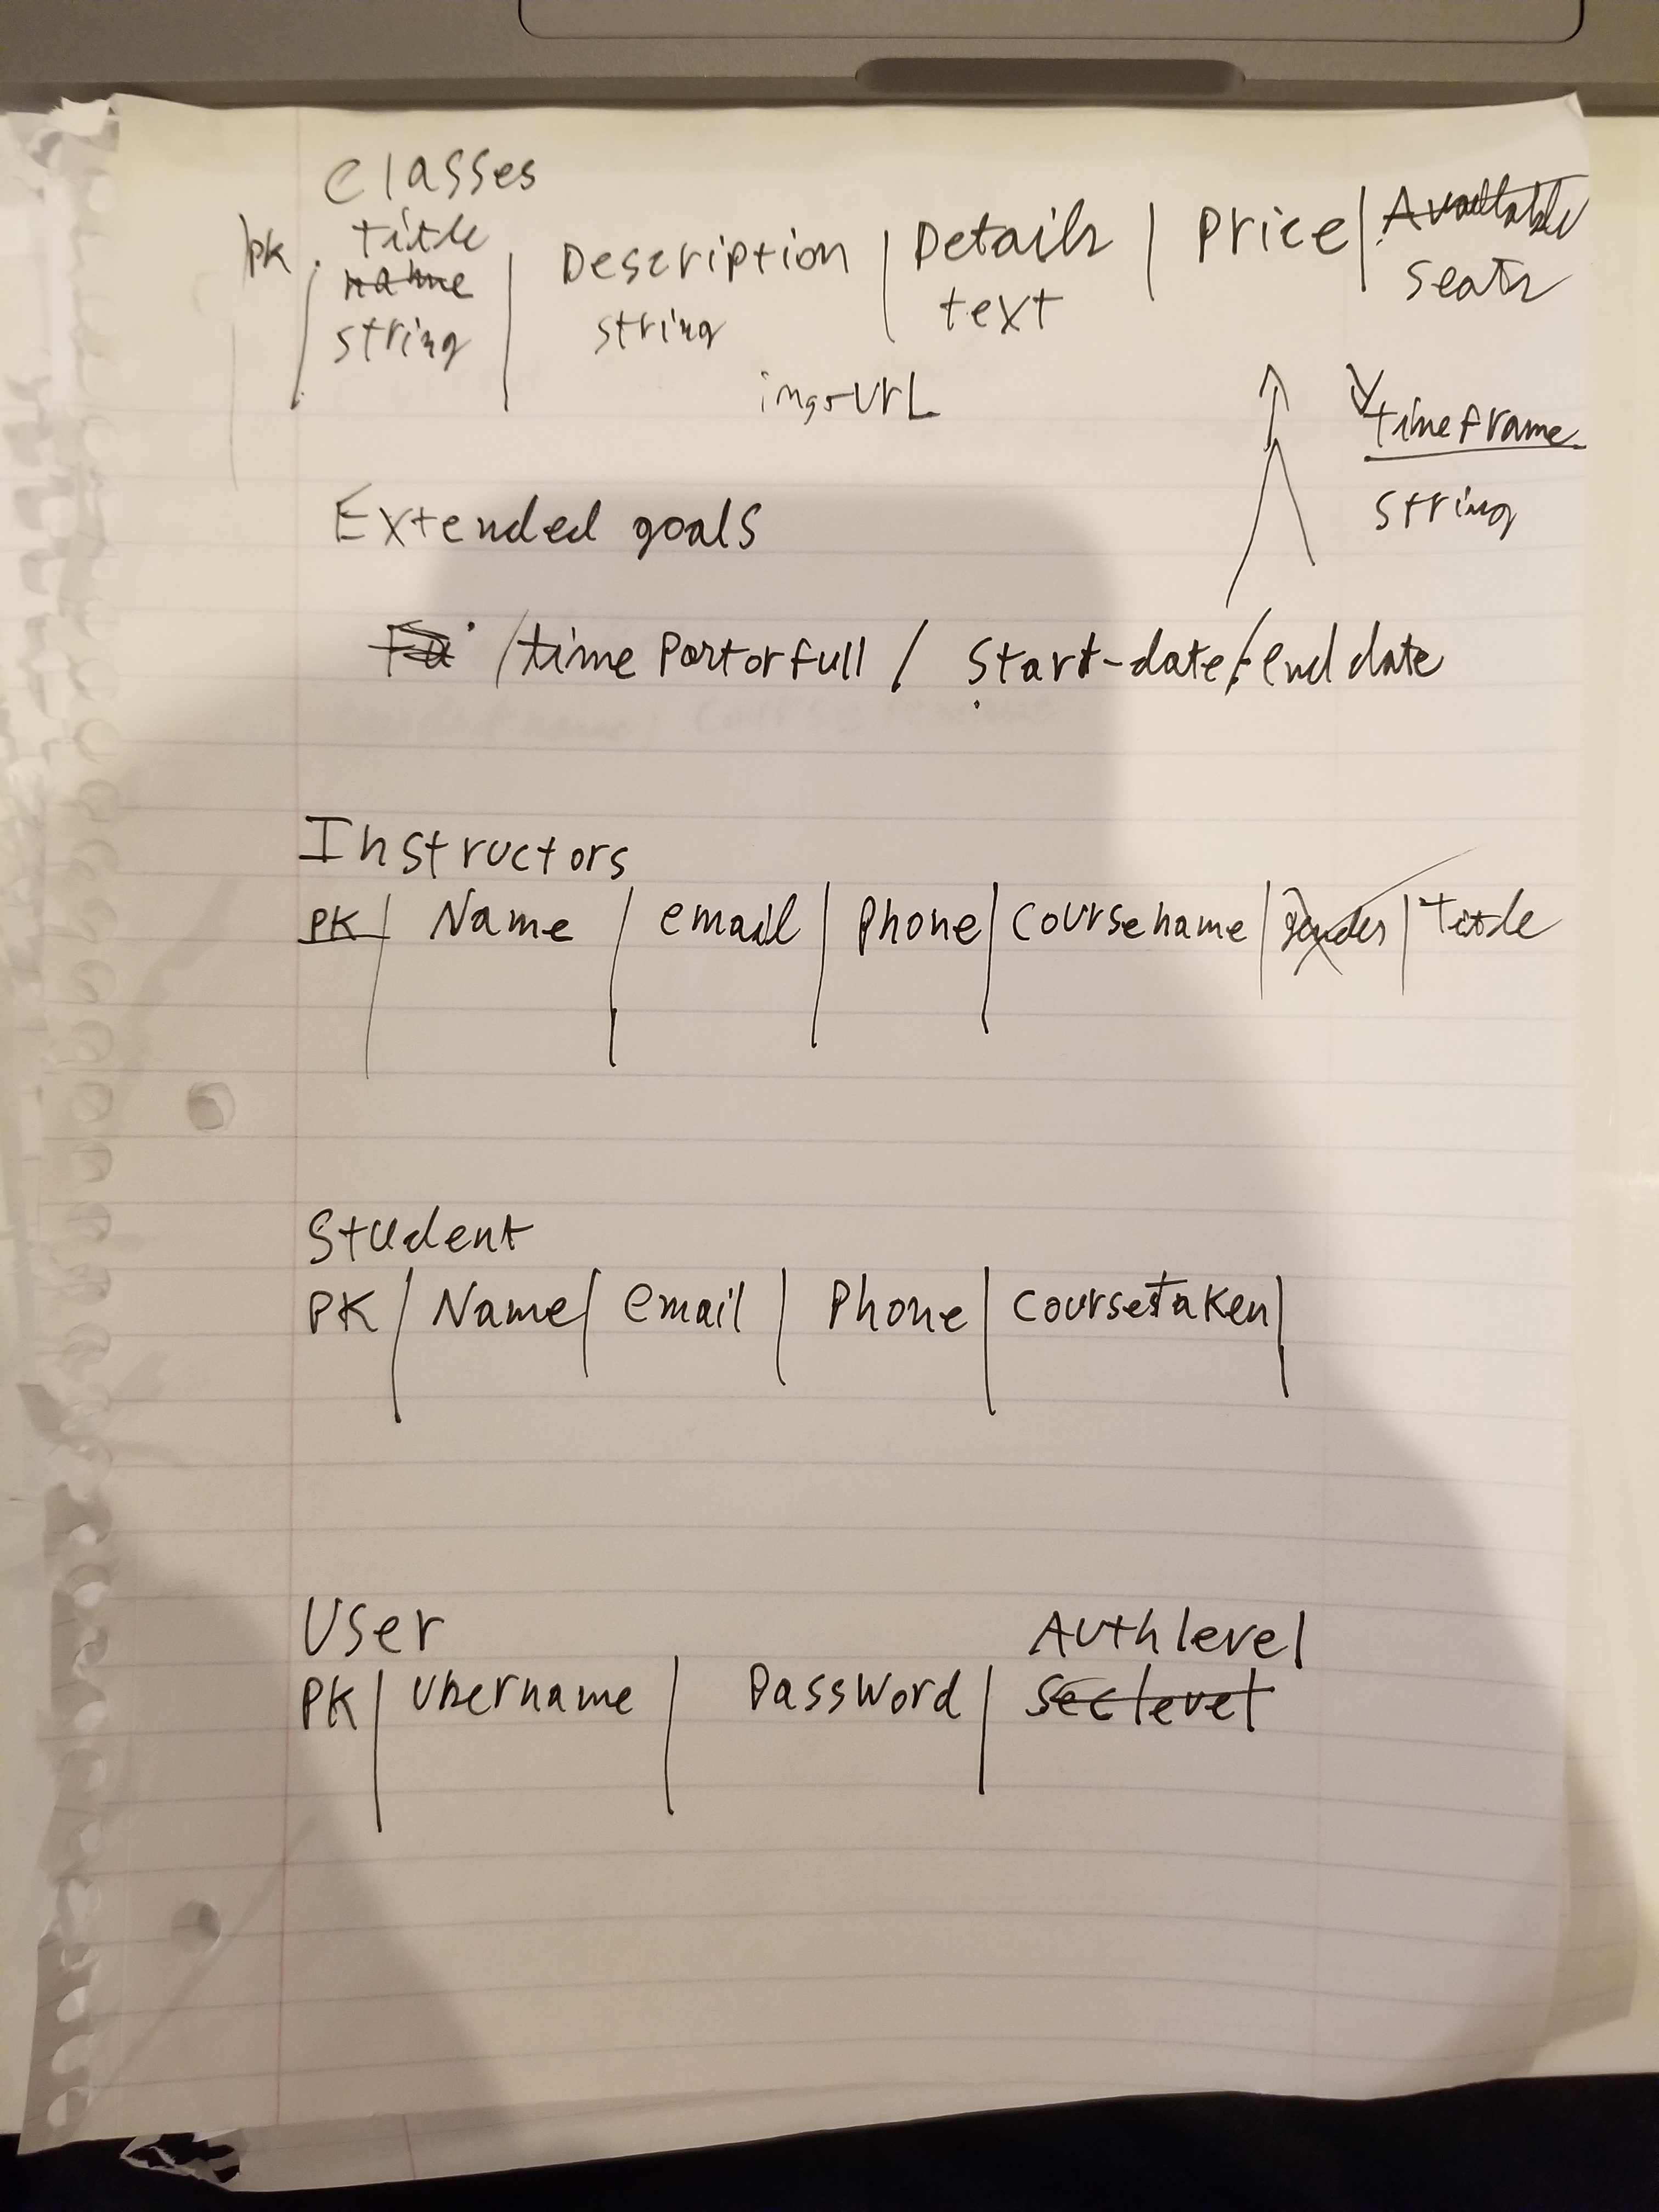 Classes
PK. title | Description | Details | Price | Available
name
string string text seats
img-url
timeframe
string
Extended goals
/time Partorfull / Start-date / end date
Instructors
PK | Name | email | Phone | Coursename | gender | Title
Student
PK | Name | email | Phone | CoursesTaken |
User Authlevel
PK | Username | Password | Seclevel